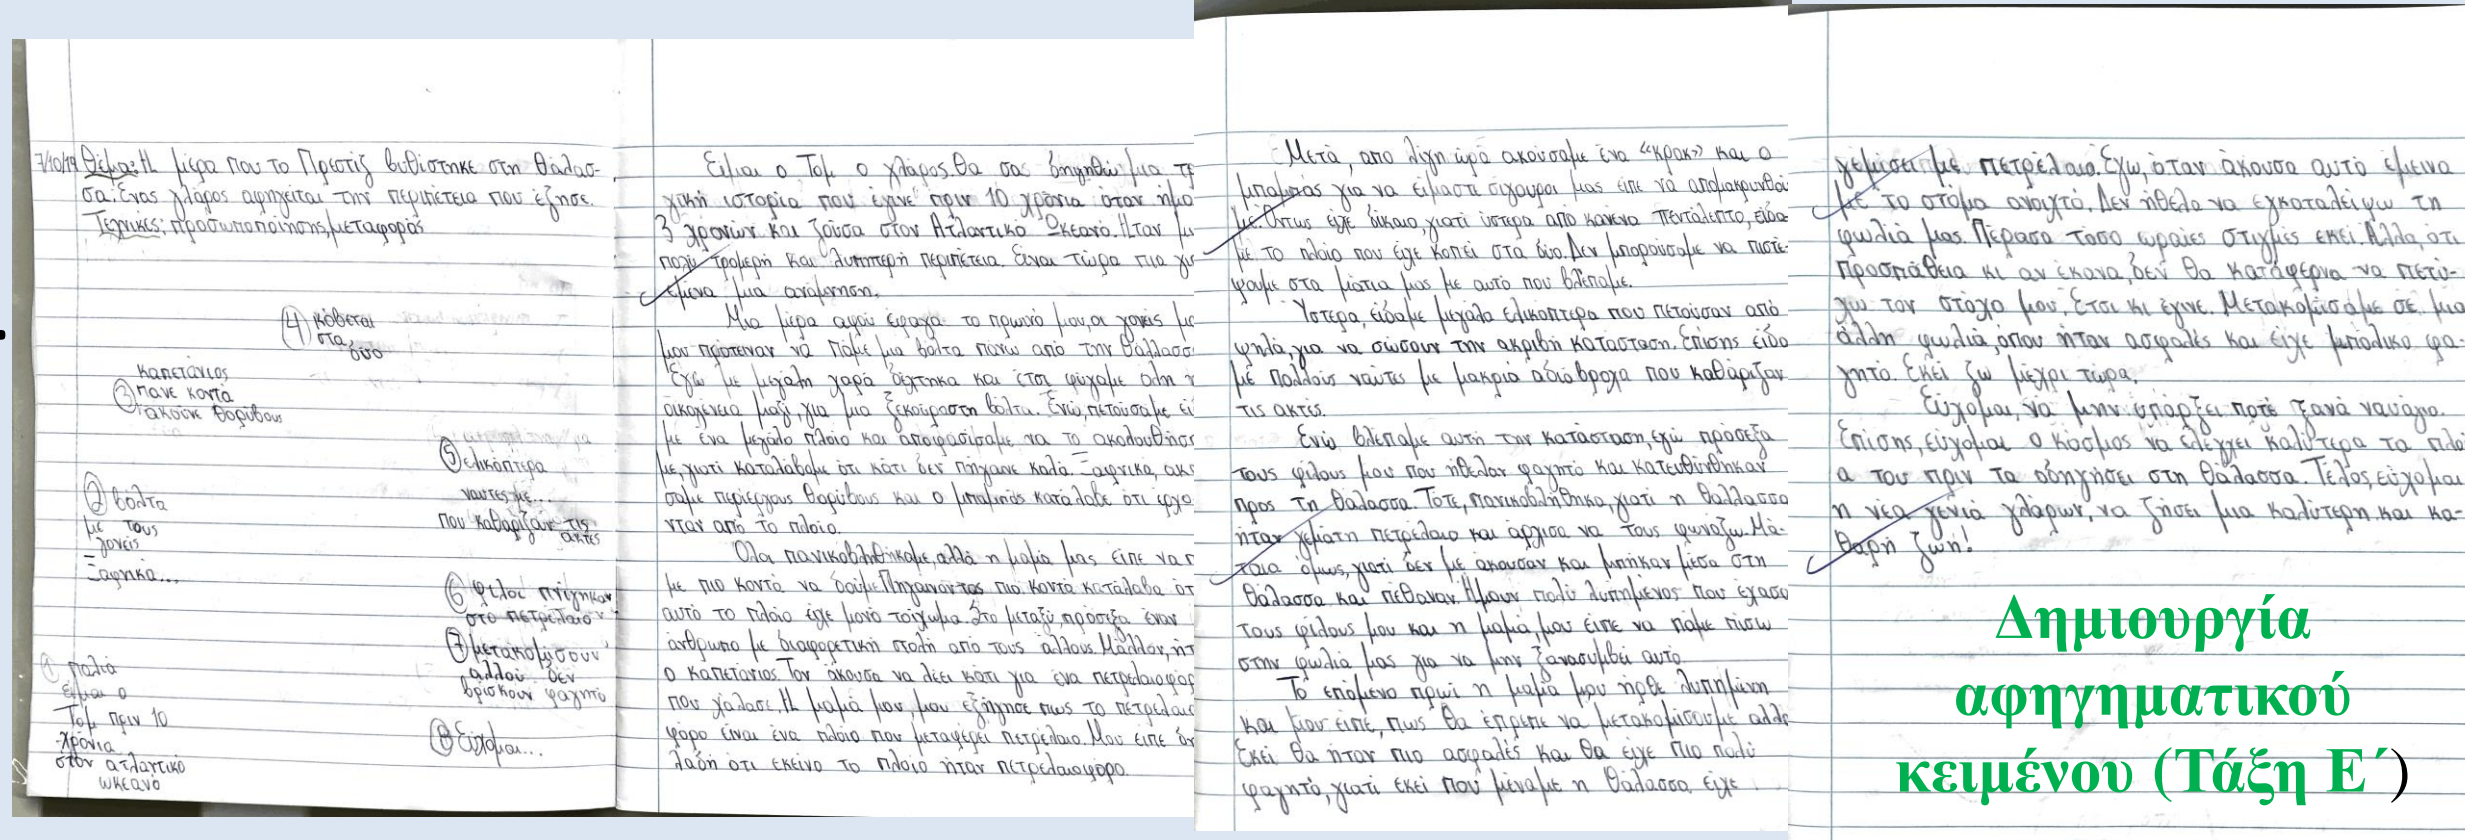 7/10/19 Θέμα: Η μέρα που το Πρεστίζ βυθίστηκε στη θάλασ-
σα. Ένας γλάρος αφηγείται την περιπέτεια που έζησε.
Τεχνικές: προσωποποίησης, μεταφοράς
④ κόβεται
στα
δύο
καπετάνιος
③ πάνε κοντά
ακούνε θορύβους
⑤ ελικόπτερα
ναύτες με...
που καθάριζαν τις
ακτές
② βόλτα
με τους
γονείς
Ξαφνικά...
⑥ φίλοι πνίγηκαν
στο πετρέλαιο
⑦ μετακομίσουν
αλλού δεν
βρίσκουν φαγητό
① παλιά
είμαι ο
Τομ πριν 10
χρόνια
στον ατλαντικό
ωκεανό
⑧ Εύχομαι...
Είμαι ο Τομ ο γλάρος. Θα σας διηγηθώ μια τρ
γική ιστορία που έγινε πριν 10 χρόνια όταν ήμο
3 χρονών και ζούσα στον Ατλαντικό Ωκεανό. Ήταν μι
πολύ τρομερή και λυπητερή περιπέτεια. Είναι τώρα πια για
εμένα μια ανάμνηση.
Μια μέρα αφού έφαγα το πρωινό μου, οι γονείς μο
μου πρότειναν να πάμε μια βόλτα πάνω από την θάλλασσ
Εγώ με μεγάλη χαρά δέχτηκα και έτσι φύγαμε όλη
οικογένεια μαζί, για μια ξεκούραστη βόλτα. Ενώ, πετούσαμε εί
με ένα μεγάλο πλοίο και αποφασίσαμε να το ακολουθήσο
με, γιατί καταλάβαμε ότι κάτι δεν πήγαινε καλά. Ξαφνικά, ακο
σαμε περίεργους θορύβους και ο μπαμπάς κατάλαβε ότι ερχό
νταν από το πλοίο.
Όλοι πανικοβληθήκαμε, αλλά η μαμά μας είπε να π
με πιο κοντά να δούμε. Πηγαίνοντας πιο κοντά κατάλαβα ότ
αυτό το πλοίο είχε μονό τοίχωμα. Στο μεταξύ, πρόσεξα έναν
άνθρωπο με διαφορετική στολή από τους άλλους. Μάλλον, ήτ
ο καπετάνιος. Τον άκουσα να λέει κάτι για ένα πετρελαιοφόρ
που χάλασε. Η μαμά μου, μου εξήγησε πως το πετρελαιο
φόρο είναι ένα πλοίο που μεταφέρει πετρέλαιο. Μου είπε δη
λαδή ότι εκείνο το πλοίο ήταν πετρελαιοφόρο.
Μετά, απο λίγη ώρα ακούσαμε ένα «κρακ» και ο
μπαμπάς για να είμαστε σίγουροι μας είπε να απομακρυνθού
με. Όντως είχε δίκαιο, γιατί ύστερα από κανένα πεντάλεπτο, είδα-
με το πλοίο που είχε κοπεί στα δύο. Δεν μπορούσαμε να πιστέ-
ψουμε στα μάτια μας με αυτό που βλέπαμε.
Ύστερα, είδαμε μεγάλα ελικόπτερα που πετούσαν από
ψηλά, για να σώσουν την ακριβή κατάσταση. Επίσης είδα
με πολλούς ναύτες με μακριά αδιάβροχα που καθάριζαν
τις ακτές.
Ενώ βλέπαμε αυτή την κατάσταση, εγώ πρόσεξα
τους φίλους μου που ήθελαν φαγητό και κατευθύνθηκαν
προς τη θάλασσα. Τότε, πανικοβλήθηκα, γιατί η θάλλασσα
ήταν γεμάτη πετρέλαιο και άρχισα να τους φωνάζω. Μά-
ταια όμως, γιατί δεν με άκουσαν και μπήκαν μέσα στη
θάλασσα και πέθαναν. Ήμουν πολύ λυπημένος που έχασα
τους φίλους μου και η μαμά, μου είπε να πάμε πίσω
στην φωλιά μας για να μην ξανασυμβεί αυτό.
Το επόμενο πρωί η μαμά μου ήρθε λυπημένη
και μου είπε, πως θα έπρεπε να μετακομίσουμε αλλο
Εκεί θα ήταν πιο ασφαλές και θα είχε πιο πολύ
φαγητό, γιατί εκεί που μέναμε η θάλασσα είχε
γεμίσει με πετρέλαιο. Εγώ, όταν άκουσα αυτό έμεινα
με το στόμα ανοιχτό. Δεν ήθελα να εγκαταλείψω τη
φωλιά μας. Πέρασα τόσο ωραίες στιγμές εκεί. Αλλά, ότι
προσπάθεια κι αν έκανα, δεν θα κατάφερνα να πετύ-
χω τον στόχο μου. Έτσι κι έγινε. Μετακομίσαμε σε μια
άλλη φωλιά, όπου ήταν ασφαλές και είχε μπόλικο φα-
γητό. Εκεί ζω μέχρι τώρα.
Εύχομαι, να μην υπάρξει ποτέ ξανά ναυάγιο.
Επίσης, εύχομαι ο κόσμος να ελέγχει καλύτερα τα πλοί
α του πριν τα οδηγήσει στη θάλασσα. Τέλος, εύχομαι
η νέα γενιά γλάρων, να ζήσει μια καλύτερη και κα-
θαρή ζωή!
Δημιουργία
αφηγηματικού
κειμένου (Τάξη Ε΄)